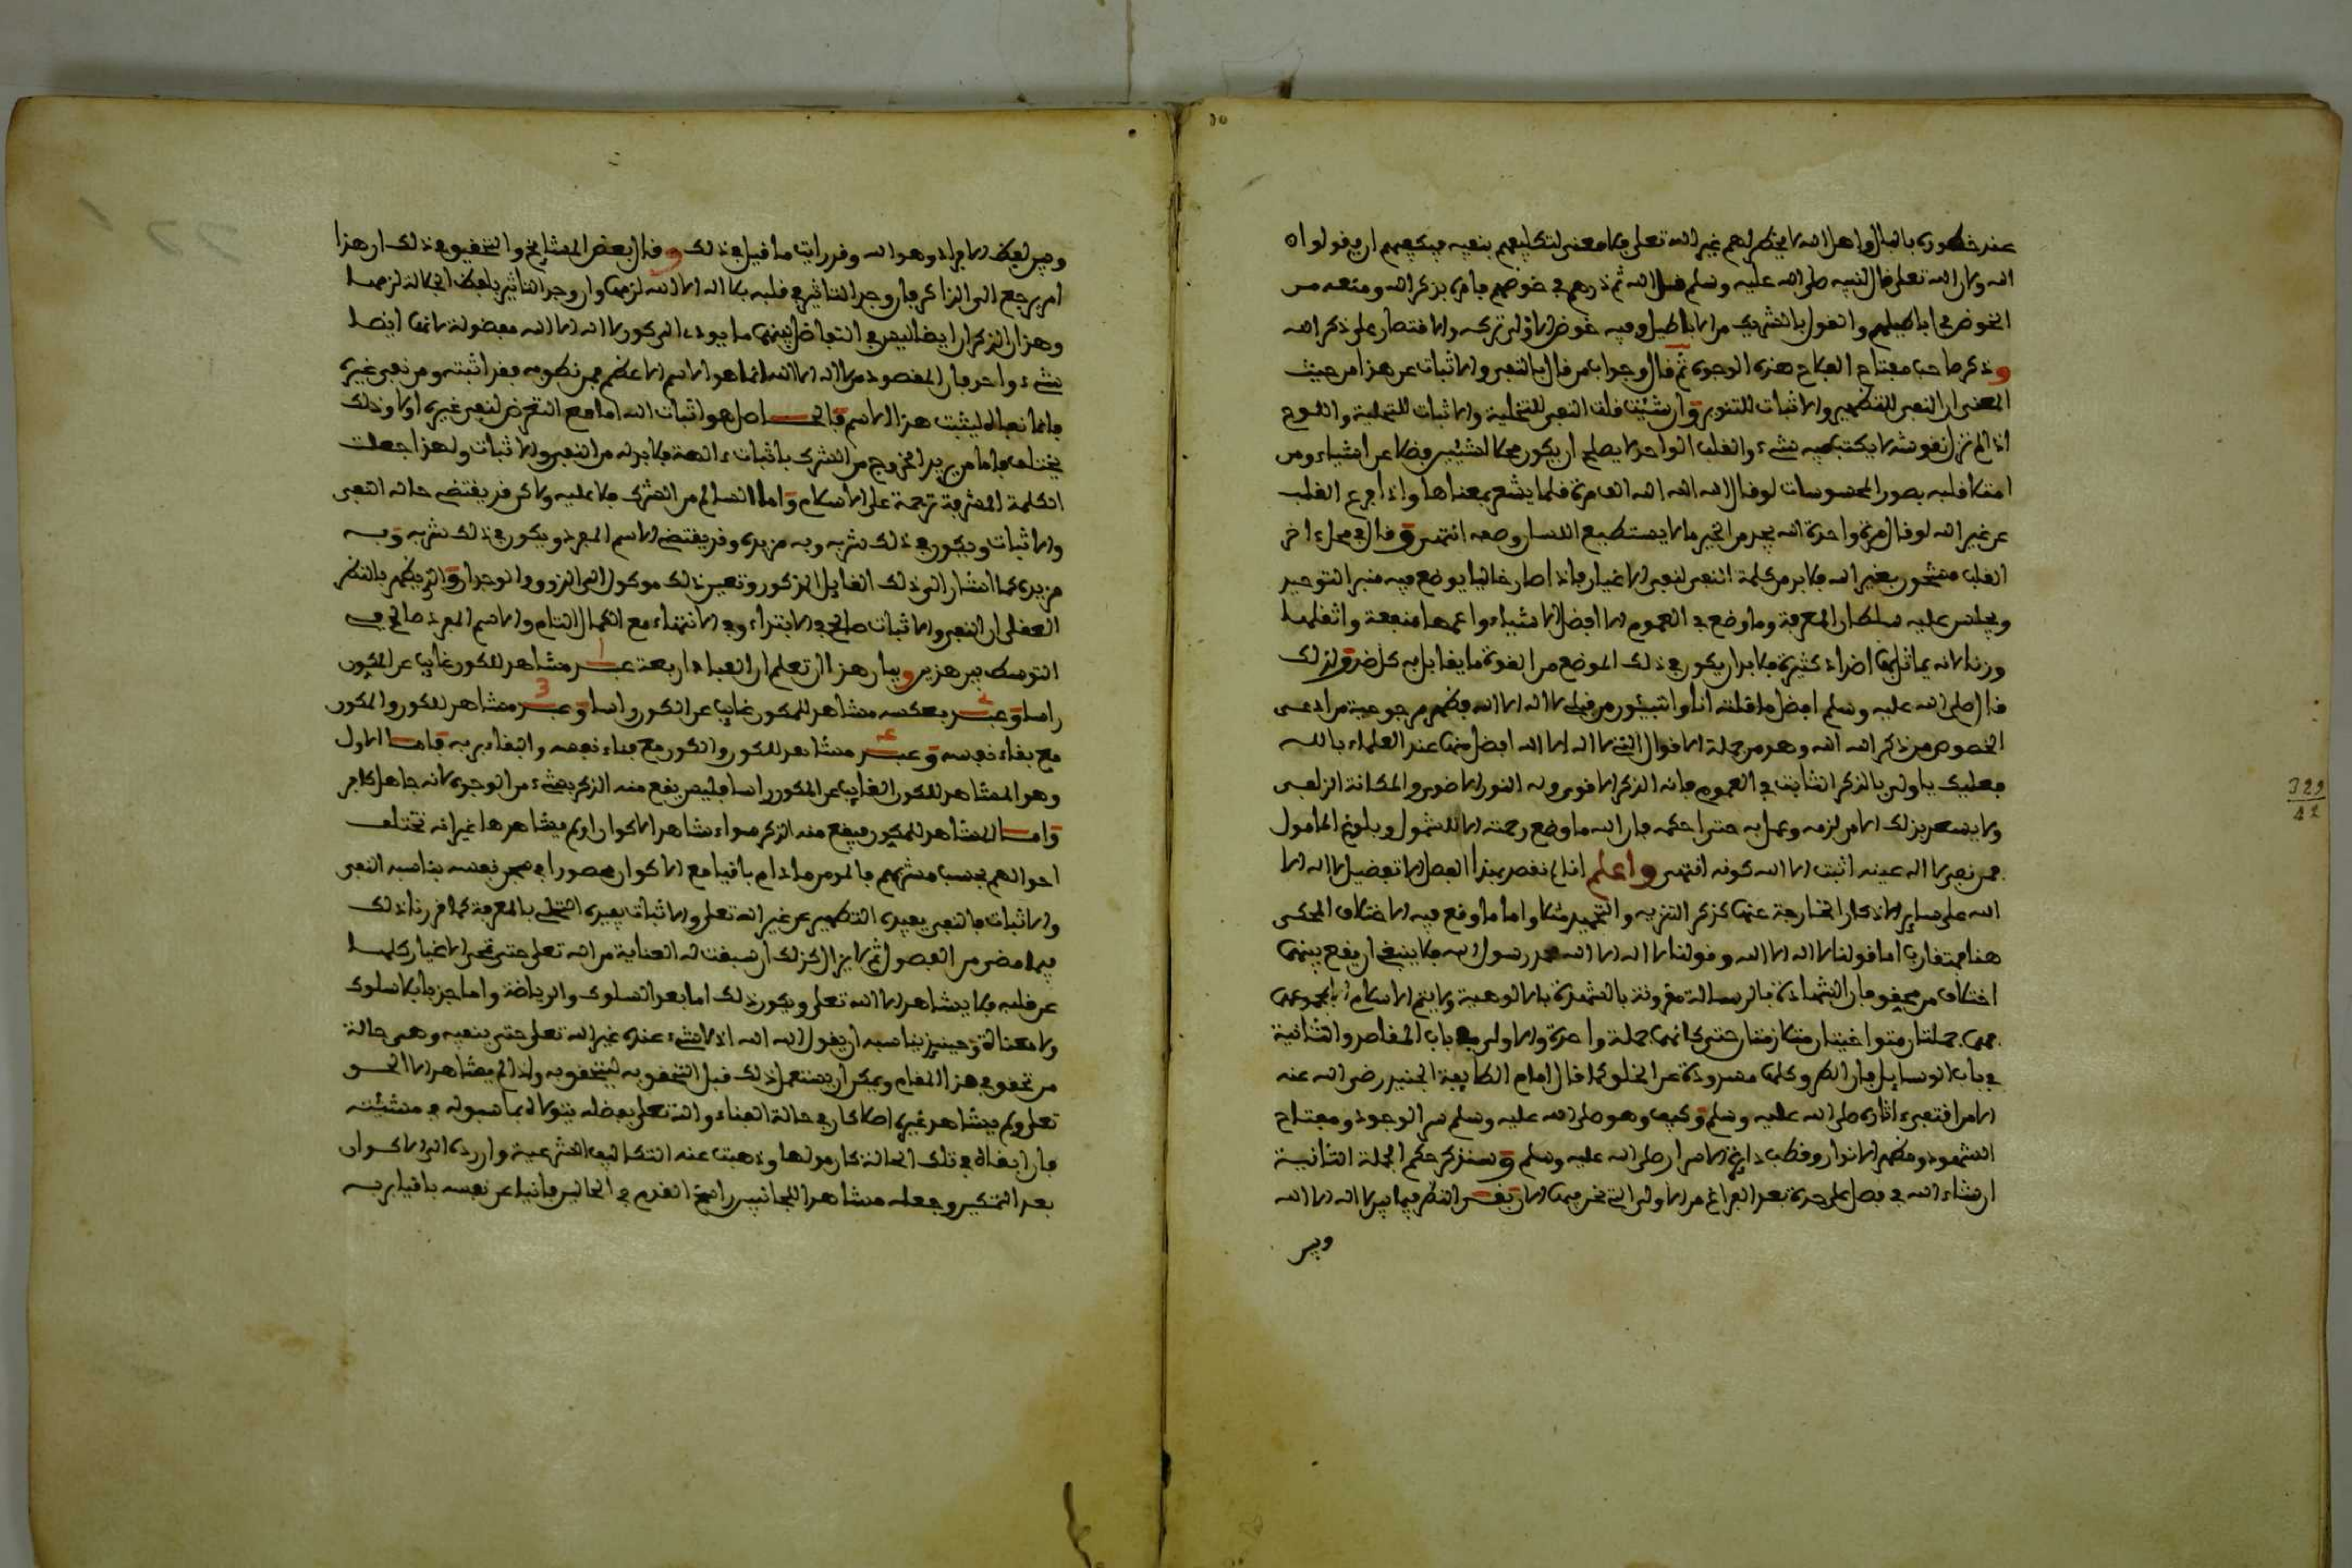 عند خطوره بالبال واهل الله لا يخطر لهم غير الله تعلى فلا معنى لتكليفهم بنفيه فيكفيهم ان يقولوا الا
الله ولان الله تعلى قال لنبيه صلى الله عليه وسلم قل الله ثم ذرهم في خوضهم فامره بذكر الله ومنعه من
الخوض في اباطيلهم والقول بالشريك من الاباطيل وفيه خوض الاولى تركه والاقتصار على ذكر الله
وذكر صاحب مفتاح الفلاح هذه الوجوه ثم قال وجواب من قال بالنفي والاثبات عن هذا من حيث
المعنى ان النفي للتطهير والاثبات للتنوير وان شئت قلت النفي للتخلية والاثبات للتحلية واللوح
اذا لم تزل نقوشه لا يكتب فيه شيء والقلب الواحد لا يصلح ان يكون محلا لشيئين فضلا عن اشياء ومن
امتلا قلبه بصور المحسوسات لو قال الله الله الله الف مرة فلما يشعر بمعناها واذا فرغ القلب
عن غير الله لو قال مرة واحدة الله يجد من الخير ما لا يستطيع اللسان وصفه انتهى وقال في محل اخر
القلب مشحون بغير الله فلا بد من كلمة النفي لنفي الاغيار فاذا صار خاليا يوضع فيه منبر التوحيد
ويجلس عليه سلطان المعرفة وما وضع في العموم الا افضل الاشياء واعمها منفعة واثقلها
وزنا لانه يماثل بها اضداد كثيرة فلا بد ان يكون في ذلك الموضع من القوة ما يقابل به كل ضد ولذلك
قال صلى الله عليه وسلم افضل ما قلته انا والنبيئون من قبلي لا اله الا الله فظهر مرجوعية من ادعى
الخصوص من ذكر الله الله وهو من جملة الاقوال التي لا اله الا الله افضل منها عند العلماء بالله
فعليك يا ولي بالذكر الثابت في العموم فانه الذكر الاقوى وله النور الاضوى والمكانة الزلفى
ولا يسعد بذلك الا من لزمه وعمل به حتى احكمه فان الله ما وضع رحمته الا للشمول وبلوغ المامول
فمن نفى بلا اله عينه اثبت بالا الله كونه انتهى واعلم انا لم نقصد بهذا الفصل الا تفضيل لا اله الا
الله على سائر الاذكار الخارجة عنها كذكر التنزيه والتحميد مثلا واما ما وقع فيه الاختلاف المحكي
هنا فمتقارب اما قولنا لا اله الا الله وقولنا لا اله الا الله محمد رسول الله فلا ينبغي ان يقع بينهما
اختلاف من محقق فان الشهادة بالرسالة مقرونة بالشهدة بالالوهية ولا يتم الاسلام الا بمجموعهما
فهما جملتان متواخيتان متلازمتان حتى كانهما جملة واحدة والاولى في باب المقاصد والثانية
في باب الوسايل فان الطرق كلها مسدودة عن الخلق كما قال امام الطايفة الجنيد رضي الله عنه
الا من اقتفى اثاره صلى الله عليه وسلم وكيف وهو صلى الله عليه وسلم سر الوجود ومفتاح
الشهود ومظهر الانوار وقطب دايرة الاسرار صلى الله عليه وسلم وسنذكر حكم الجملة الثانية
ان شاء الله في فصل على حدة بعد الفراغ من الاولى التي نحن فيها الان بقي النظر فيما بين لا اله الا الله
وبين
وبين لفظ الافراد وهو الله وقد رايت ما قيل في ذلك وقال بعض المشايخ والتحقيق في ذلك ان هذا
امر يرجع الى الذاكر فان وجد التاثير في قلبه بلا اله الا الله لزمها وان وجد التاثير بلفظ الجلالة لزمها
وهذان الذكران ايضا ليس في التفاضل بينهما ما يودي الى كون لا اله الا الله مفضولة لانها ايضا
شيء واحد فان المقصود من لا اله الا الله انما هو الاسم الاعظم فمن نطق به فقد اثبته ومن نفى غيره
فانما نفاه ليثبت هذا الاسم فالحاصل هو اثبات الله اما مع التعرض لنفي غيره اولا وذلك
يختلف فاما من يريد الخروج من الشرك باثبات الاهة فلا بد له من النفي والاثبات ولهذا جعلت
الكلمة المشرفة ترجمة على الاسلام واما السالم من الشرك فلا عليه ولاكن قد يقتضي حاله النفي
والاثبات ويكون في ذلك شربه وبه مزيده وقد يقتضي الاسم المفرد ويكون في ذلك شربه وبه
مزيده كما اشار الى ذلك القايل المذكور وتعيين ذلك موكول الى الذوق والوجدان والذي يظهر بالنظر
العقلي ان النفي والاثبات صالح في الابتداء وفي الانتهاء مع الكمال التام والاسم المفرد صالح في
التوسط بين هذين وبيان هذا ان تعلم ان العباد اربعة عبد مشاهد للكون غايب عن المكون
راسا وعبد بعكسه مشاهد للمكون غايب عن الكون راسا وعبد مشاهد للكون والمكون
مع بقاء نفسه وعبد مشاهد للكون والمكون مع فناء نفسه والبقاء بربه فاما الاول
وهو المشاهد للكون الغايب عن المكون راسا فليس يقع منه الذكر بشيء من الوجوه لانه جاهل كافر
واما المشاهد للمكون فيقع منه الذكر سواء شاهد الاكوان او لم يشاهدها غير انه تختلف
احوالهم بحسب مشربهم فالمومن ما دام باقيا مع الاكوان محصورا في سجن نفسه يناسبه النفي
والاثبات فالنفي يفيده التطهير عن غير الله تعلى والاثبات يفيده التحلي بالمعرفة كما قررنا ذلك
فيما مضى من الفصول ثم لا يزال كذلك ان سبقت له العناية من الله تعلى حتى تمحى الاغيار كلها
عن قلبه فلا يشاهد الا الله تعلى ويكون ذلك اما بعد السلوك والرياضة واما جذبا بلا سلوك
ولا معاناة وحينئذ يناسبه ان يقول الله الله اذ لا شيء عنده غير الله تعلى حتى ينفيه وهي حالة
من تحقق في هذا المقام ويمكن ان يستعمل ذلك قبل التحقق به ليتحقق به واذا لم يشاهد الا الحق
تعلى ولم يشاهد غيره اصلا كان في حالة الفناء والله تعلى بفضله يتولاه بما سبق له في مشيئته
فان ابقاه في تلك الحالة كان مولها وذهبت عنه التكاليف الشرعية وان رده الى الاكوان
بعد التمكين وجعله مشاهدا للجانبين راسخ القدم في الحالين فانيا عن نفسه باقيا بربه